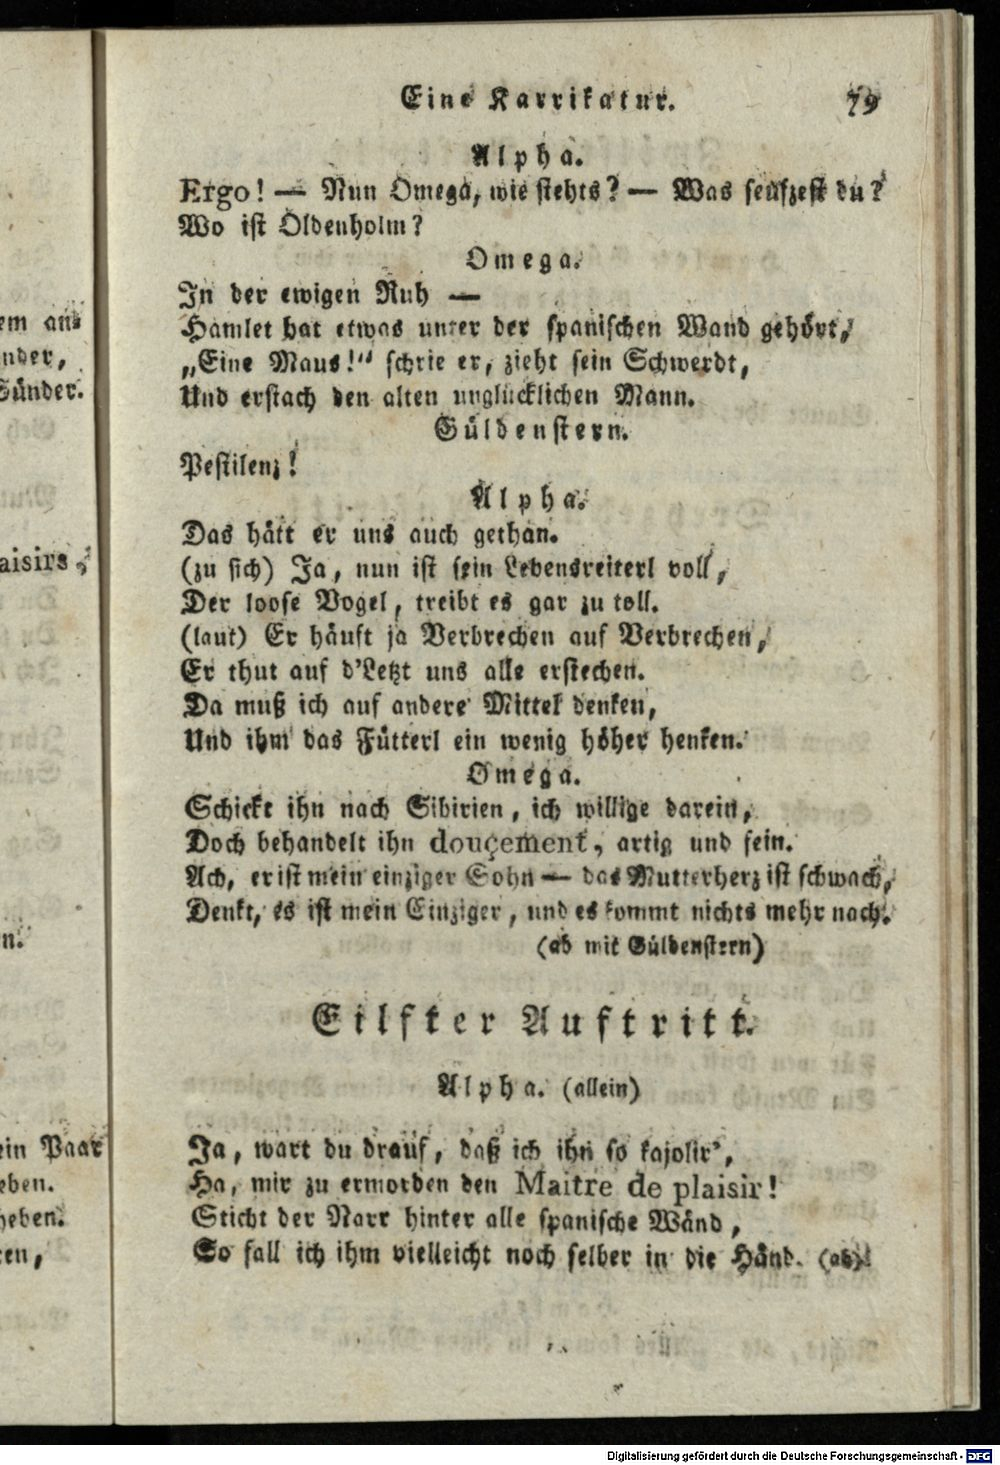 Eine Karrikatur. 79
Alpha.
Ergo! — Nun Omega, wie stehts? — Was seufzest du?
Wo ist Oldenholm?
Omega.
In der ewigen Ruh —
Hamlet hat etwas unter der spanischen Wand gehört,
„Eine Maus!“ schrie er, zieht sein Schwerdt,
Und erstach den alten unglücklichen Mann.
Güldenstern.
Pestilenz!
Alpha.
Das hätt er uns auch gethan.
(zu sich) Ja, nun ist sein Lebensreiterl voll,
Der loose Vogel, treibt es gar zu toll.
(laut) Er häuft ja Verbrechen auf Verbrechen,
Er thut auf d'Letzt uns alle erstechen.
Da muß ich auf andere Mittel denken,
Und ihm das Fütterl ein wenig höher henken.
Omega.
Schickt ihn nach Sibirien, ich willige darein,
Doch behandelt ihn douçement, artig und fein.
Ach, er ist mein einziger Sohn — das Mutterherz ist schwach,
Denkt, es ist mein Einziger, und es kommt nichts mehr nach.
(ab mit Güldenstern)
Eilfter Auftritt.
Alpha. (allein)
Ja, wart du drauf, daß ich ihn so kajolir',
Ha, mir zu ermorden den Maitre de plaisir!
Sticht der Narr hinter alle spanische Wänd,
So fall ich ihm vielleicht noch selber in die Händ. (ab)
em an
nder,
Sünder.
aisirs,
n.
ein Paar
eben.
heben.
ten,
Digitalisierung gefördert durch die Deutsche Forschungsgemeinschaft - DFG